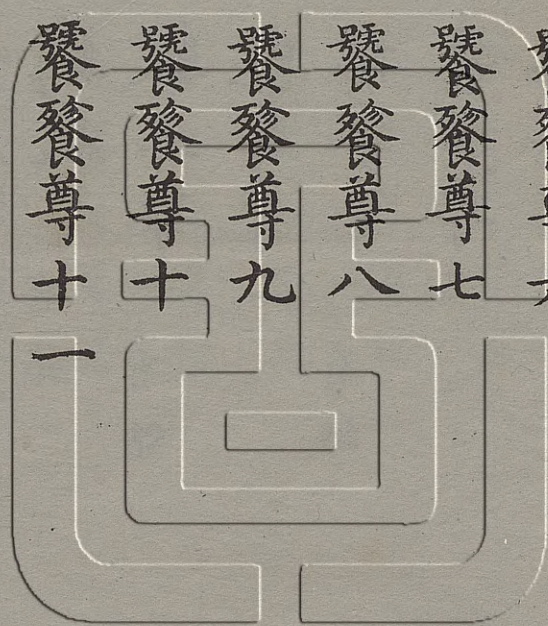 饕餮尊六
饕餮尊七
饕餮尊八
饕餮尊九
饕餮尊十
饕餮尊十一